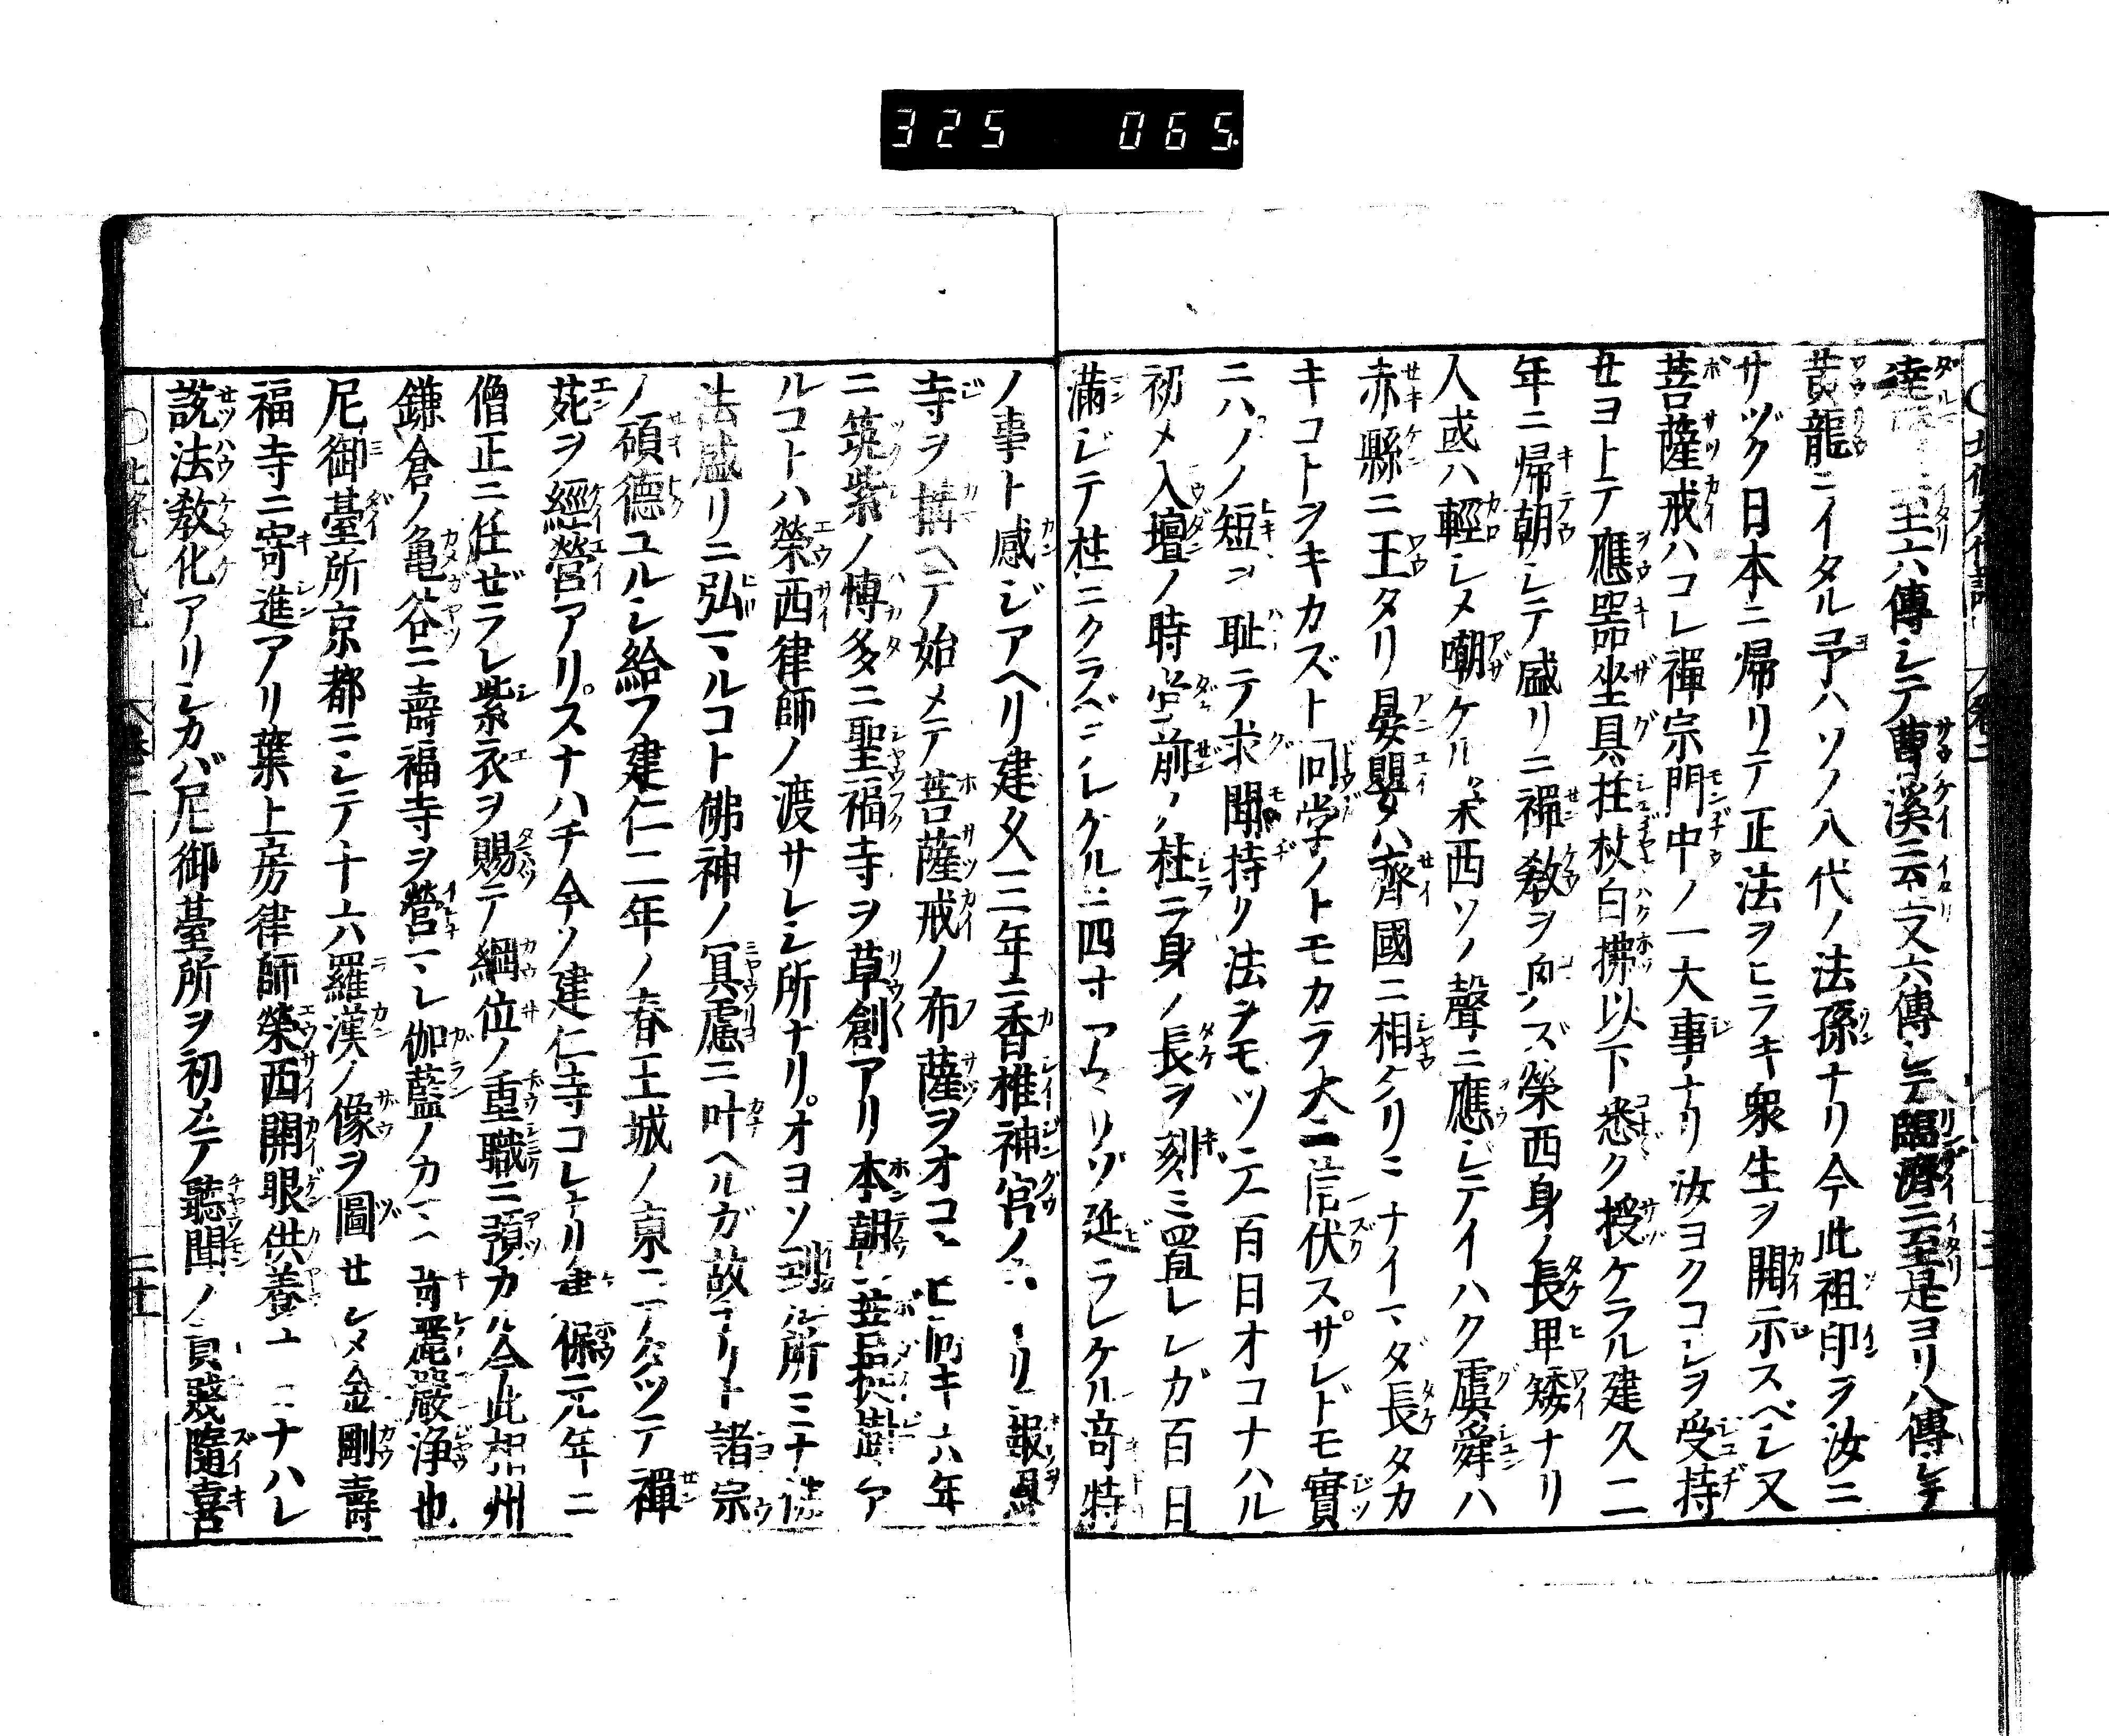 325 065
達 ニ至六傳シテ曹溪ニ至又六傳シテ臨濟ニ至是ヨリ八傳シテ
黄龍ニイタル予ハソノ八代ノ法孫ナリ今此祖印ヲ汝ニ
サヅク日本ニ帰リテ正法ヲヒラキ衆生ヲ開示スベシ又
菩薩戒ハコレ禪宗門中ノ一大事ナリ汝ヨクコレヲ受持
セヨトテ應噐坐具拄杖白拂以下悉ク授ケラル建久二
年ニ帰朝シテ盛リニ禪教ヲ向ハズ榮西身ノ長卑矮ナリ
人或ハ輕シメ嘲ケル榮西ソノ聲ニ應ジテイハク虞舜ハ
赤縣ニ王タリ晏嬰ハ齊國ニ相タリミナイマダ長タカ
キコトヲキカズト同学ノトモカラ大ニ信伏スサレドモ實
ニハソノ短ヲ耻テ求聞持ノ法ヲモツテ一百日オコナハル
初メ入壇ノ時堂前ノ柱ラ身ノ長ヲ刻ミ置レシガ百日
滿ジテ柱ニクラベラレケルニ四寸アマリゾ延ラレケル奇特
ノ事ト感ジアヘリ建久三年ニ香椎神宮ノ リ報恩
寺ヲ搆ヘテ始メテ菩薩戒ノ布薩ヲオコ ヒ同キ六年
ニ筑紫ノ博多ニ聖福寺ヲ草創アリ本朝ニ菩提樹ア
ルコトハ榮西律師ノ渡サレシ所ナリオヨソ到ル所ミナ
法盛リニ弘マルコト佛神ノ冥慮ニ叶ヘルガ故ナリト諸宗
ノ碩德ユルシ給フ建仁二年ノ春王城ノ東ニアタツテ禪
苑ヲ經營アリスナハチ今ノ建仁寺コレナリ建保元年ニ
僧正ニ任ゼラレ紫衣ヲ賜テ綱位ノ重職ニ預カル今此相州
鎌倉ノ亀谷ニ壽福寺ヲ營マレ伽藍ノカマヘ奇麗嚴浄也
尼御臺所京都ニシテ十六羅漢ノ像ヲ圖セシメ金剛壽
福寺ニ寄進アリ葉上房律師榮西開眼供養ヲ ナハレ
説法教化アリシカバ尼御臺所ヲ初メテ聽聞ノ貴賤隨喜